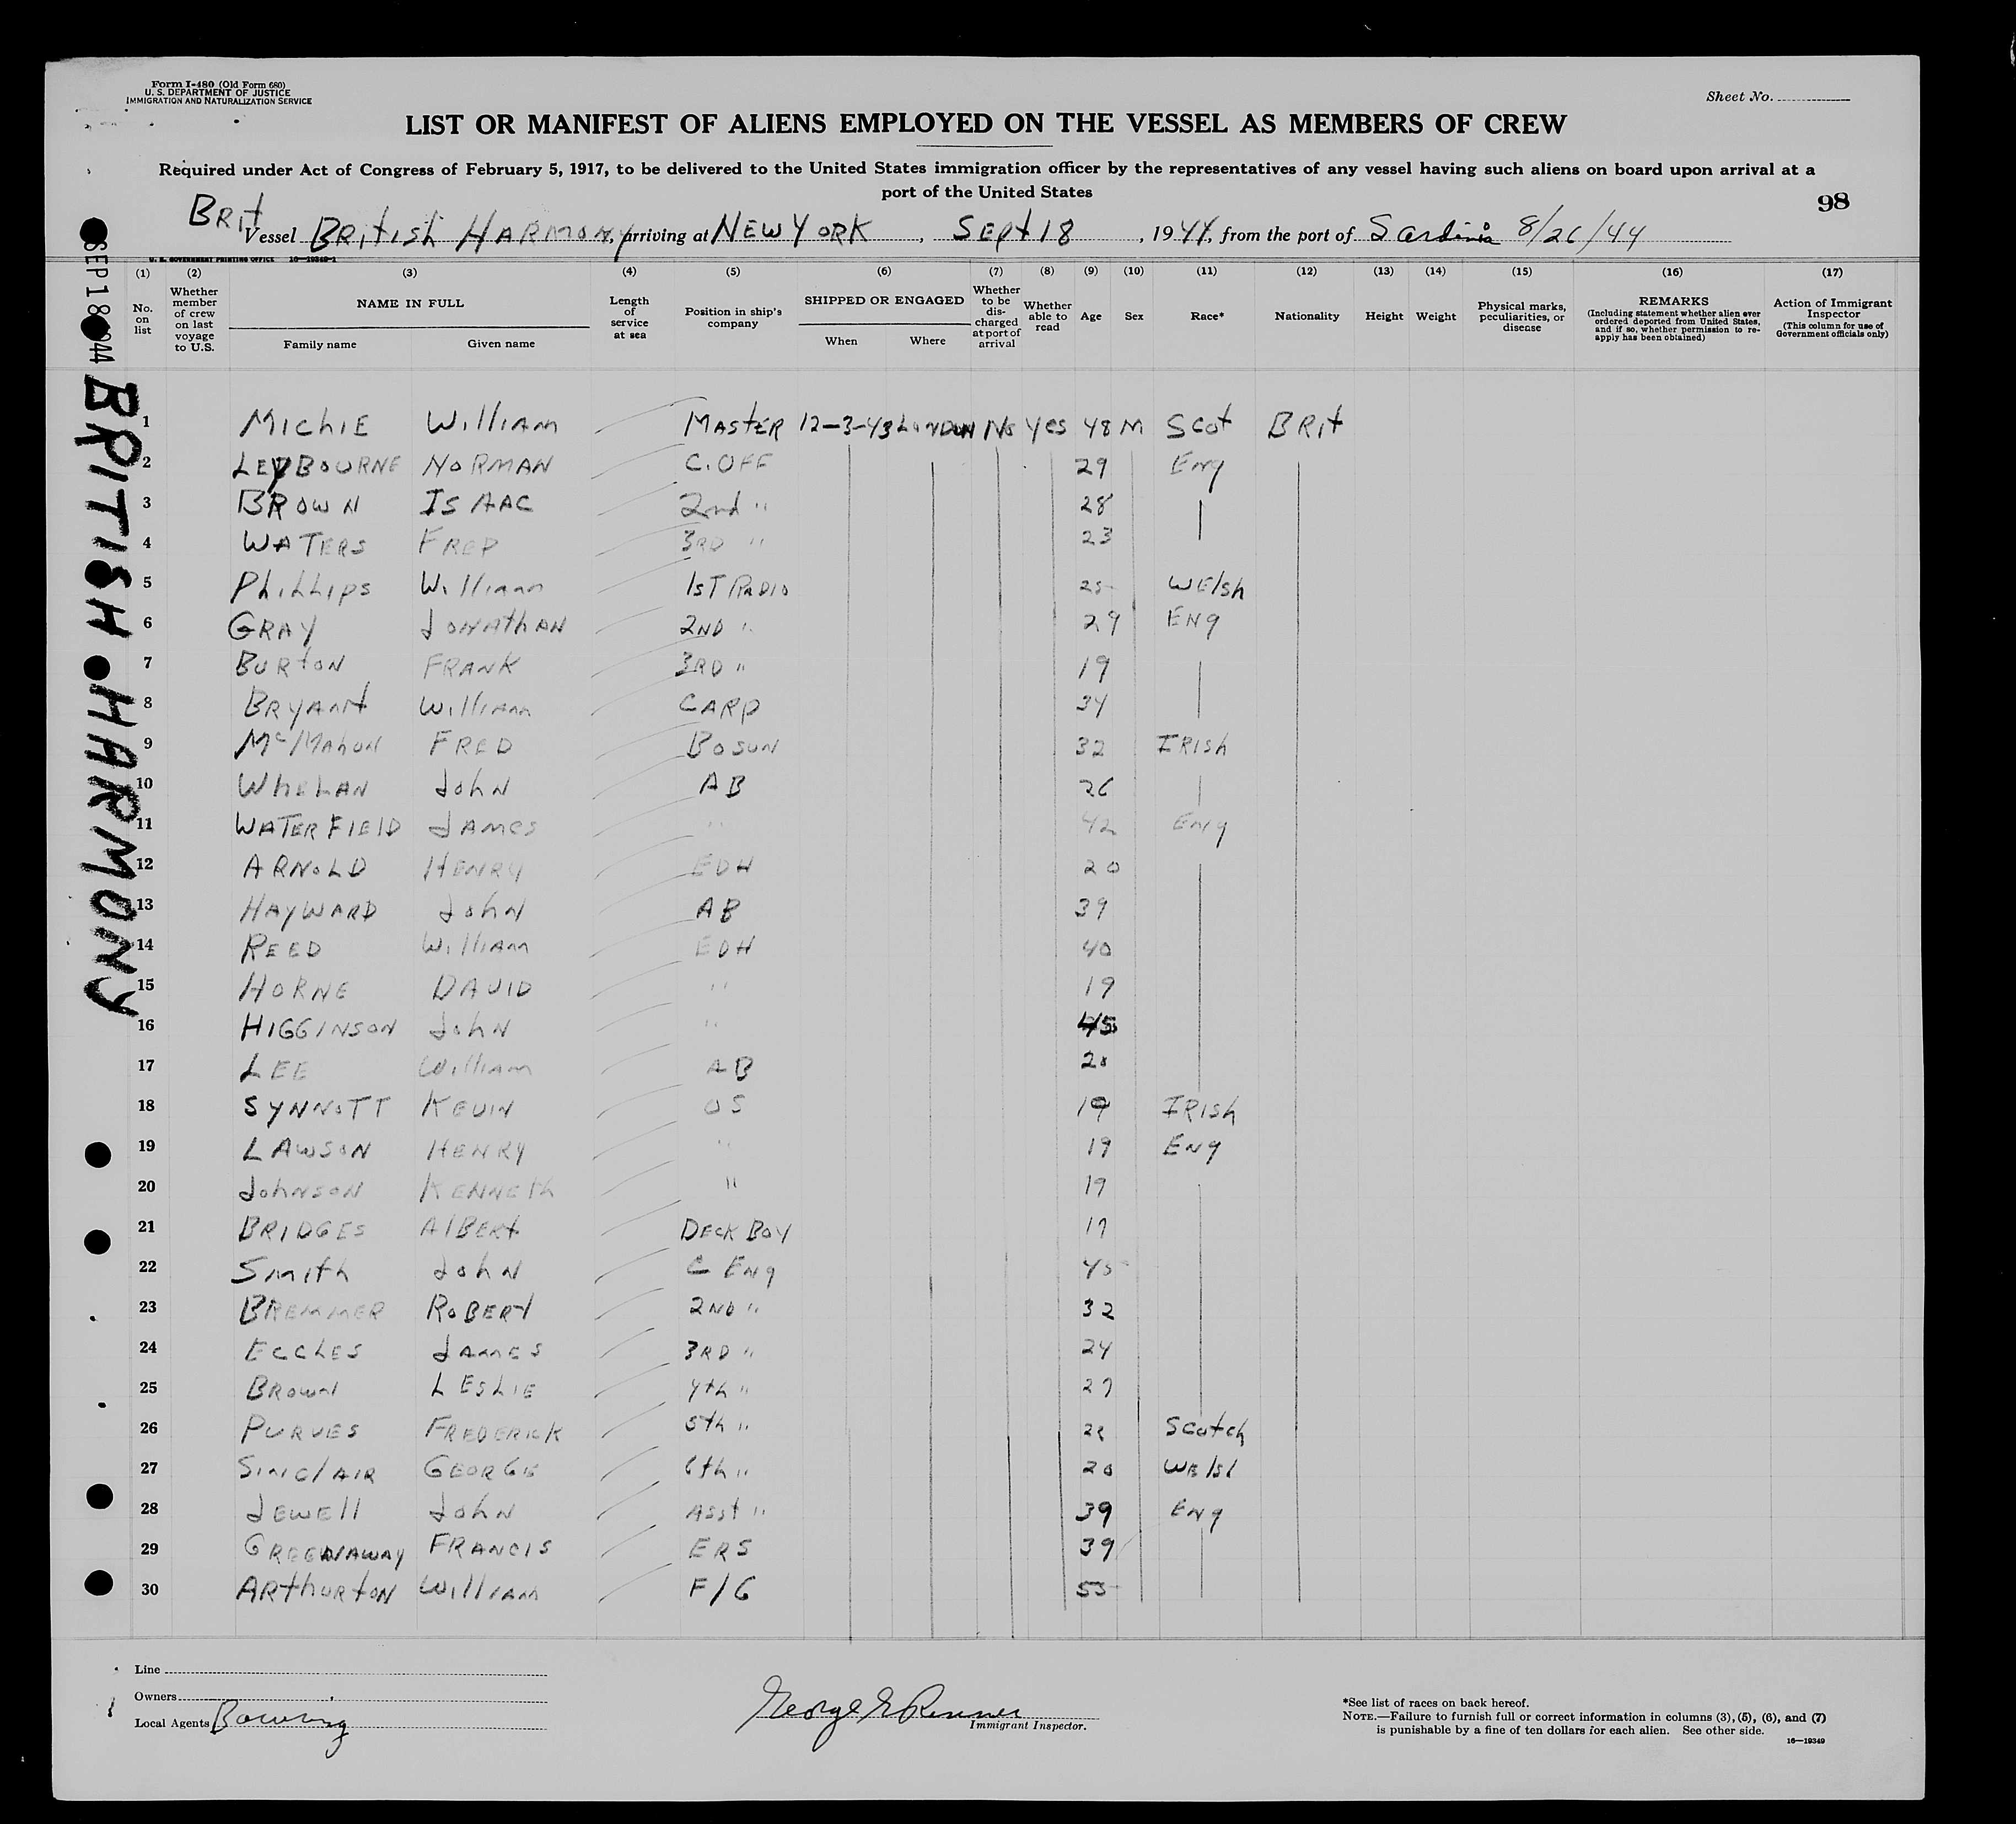 Form I-480 (Old Form 680)
U. S. DEPARTMENT OF JUSTICE
IMMIGRATION AND NATURALIZATION SERVICE
Sheet No.
LIST OR MANIFEST OF ALIENS EMPLOYED ON THE VESSEL AS MEMBERS OF CREW
Required under Act of Congress of February 5, 1917, to be delivered to the United States immigration officer by the representatives of any vessel having such aliens on board upon arrival at a
port of the United States
98
Brit
Vessel British Harmony, arriving at New York, Sept 18, 1944, from the port of Sardinia 8/26/44
U. S. GOVERNMENT PRINTING OFFICE 16—19349-1
SEP 18 1944 BRITISH HARMONY
(1) (2) (3) (4) (5) (6) (7) (8) (9) (10) (11) (12) (13) (14) (15) (16) (17)
No. on list
Whether member of crew on last voyage to U.S.
NAME IN FULL
Family name Given name
Length of service at sea
Position in ship's company
SHIPPED OR ENGAGED
When Where
Whether to be discharged at port of arrival
Whether able to read
Age
Sex
Race*
Nationality
Height
Weight
Physical marks, peculiarities, or disease
REMARKS
(Including statement whether alien ever ordered deported from United States, and if so, whether permission to reapply has been obtained)
Action of Immigrant Inspector
(This column for use of Government officials only)
1 Michie William Master 12-3-43 London No Yes 48 M Scot Brit
2 Leybourne Norman C. Off 29 Eng
3 Brown Isaac 2nd " 28
4 Waters Fred 3rd " 23
5 Phillips William 1st Radio 25 Welsh
6 Gray Jonathan 2nd " 29 Eng
7 Burton Frank 3rd " 19
8 Bryant William Carp 34
9 McMahon Fred Bosun 32 Irish
10 Whelan John AB 26
11 Waterfield James " 42 Eng
12 Arnold Henry EDH 20
13 Hayward John AB 39
14 Reed William EDH 40
15 Horne David " 19
16 Higginson John " 45
17 Lee William AB 20
18 Synnott Kevin OS 19 Irish
19 Lawson Henry " 19 Eng
20 Johnson Kenneth " 19
21 Bridges Albert Deck Boy 17
22 Smith John C Eng 45
23 Bremmer Robert 2nd " 32
24 Eccles James 3rd " 24
25 Brown Leslie 4th " 27
26 Purves Frederick 5th " Scotch
27 Sinclair George 6th " 20 Welsh
28 Jewell John Asst " 39 Eng
29 Greenaway Francis ERS 39
30 Arthurton William F/G 55
Line
Owners
Local Agents Bowring
George E Renner
Immigrant Inspector.
*See list of races on back hereof.
NOTE.—Failure to furnish full or correct information in columns (3), (5), (6), and (7)
is punishable by a fine of ten dollars for each alien. See other side.
16—19349